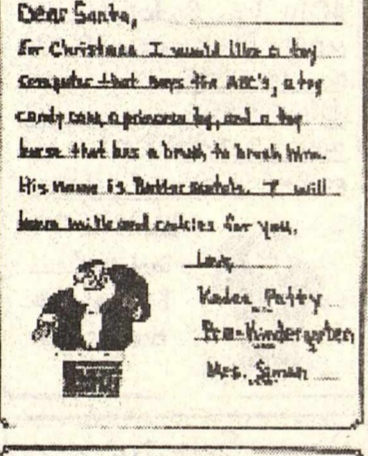 Dear Santa,
For Christmas I would like a toy
computer that says the ABC's, a toy
candy cane, a princess toy, and a toy
horse that has a brush to brush him.
His name is Butterscotch. I will
leave milk and cookies for you.
Love,
Patty
Pre-Kindergarten
Mrs.